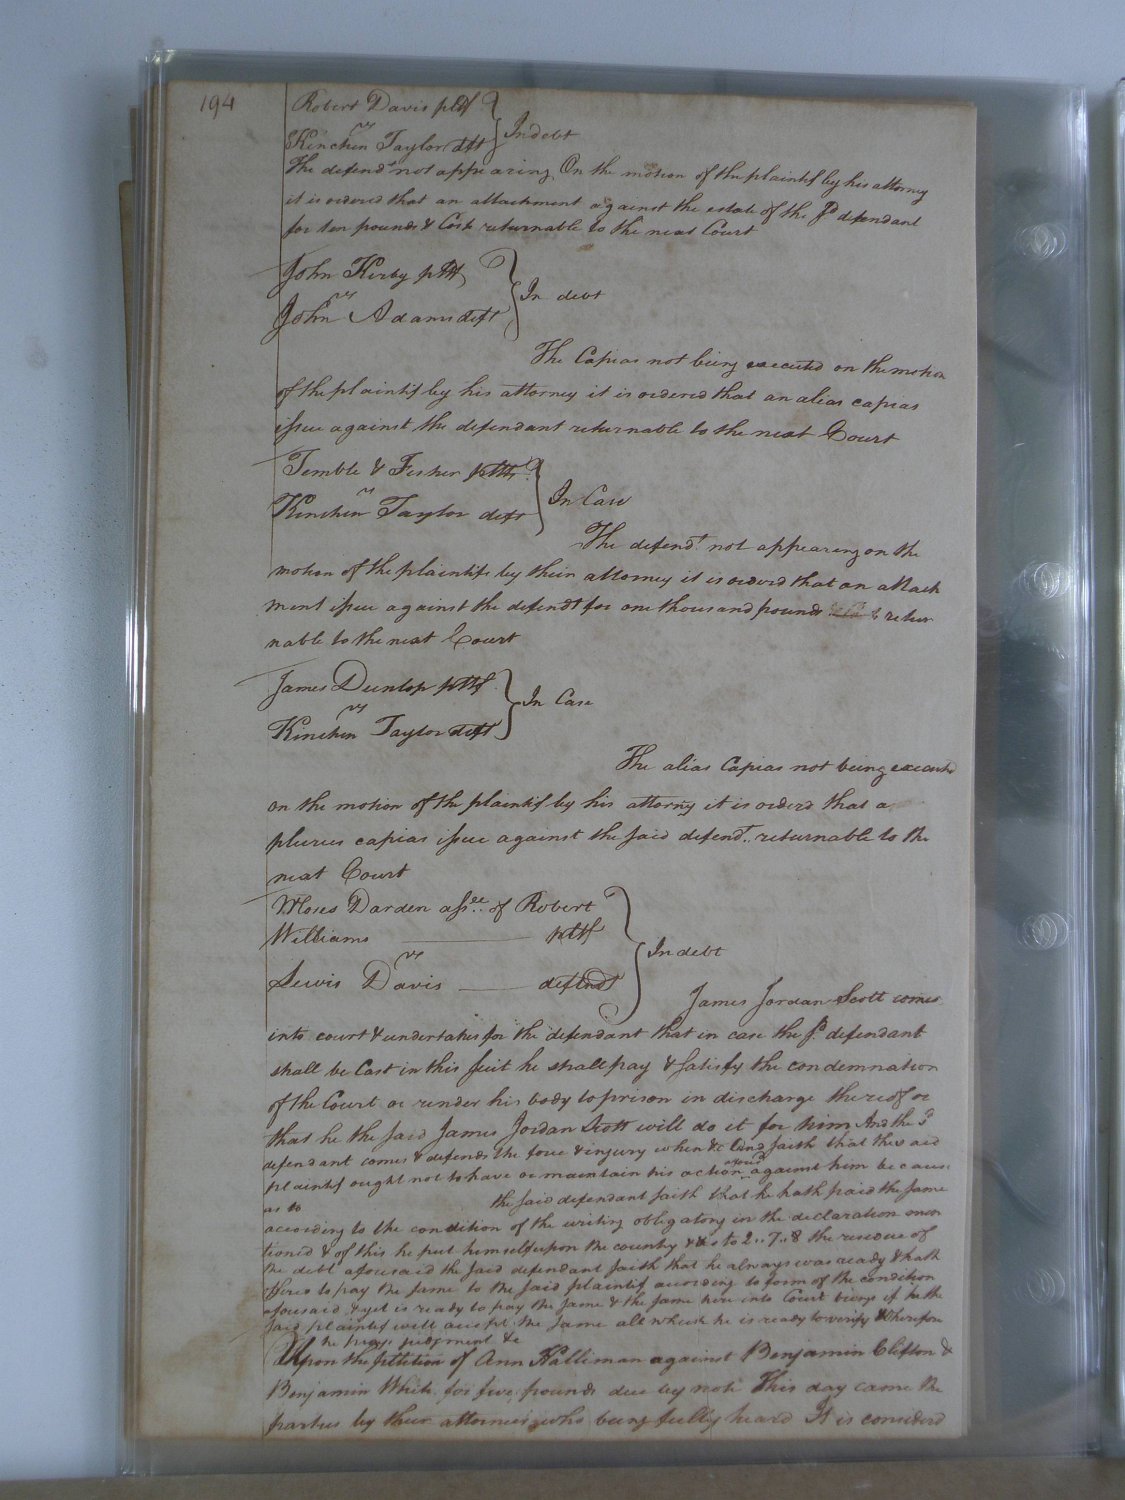 194
Robert Davis pltf
vs
Kinchen Taylor deft
In debt
The defendt not appearing On the motion of the plaintif by his attorney
it is ordered that an attachment against the estate of the sd defendant
for ten pounds & Costs returnable to the next Court
John Kirby pltf
vs
John Adams deft
In debt
The Capias not being executed on the motion
of the plaintif by his attorney it is ordered that an alias capias
issue against the defendant returnable to the next Court
Temble & Fisher pltfs
vs
Kinchen Taylor deft
In Case
The defendt not appearing on the
motion of the plaintifs by their attorney it is orderd that an attach
ment issue against the defendt for one thousand pounds & retur
nable to the next Court
James Dunlop pltf
vs
Kinchen Taylor deft
In Case
The alias Capias not being executed
on the motion of the plaintif by his attorny it is orderd that a
pluries capias issue against the said defendt. returnable to the
next Court
Moses Darden assee. of Robert
Williams pltf
vs
Lewis Davis defendt
In debt
James Jordan Scott comes
into court & undertakes for the defendant that in case the sd defendant
shall be Cast in this suit he shall pay & satisfy the condemnation
of the Court or render his body to prison in discharge thereof or
that he the said James Jordan Scott will do it for him And the sd
defendant comes & defends the force & injury when &c And saith that the said
plaintif ought not to have or maintain his action aforsd against him because
as to the said defendant saith that he hath paid the same
according to the condition of the writing obligatory in the declaration men
tioned & of this he put himself upon the country & as to 2..7..8 the residue of
the debt aforesaid the said defendant saith that he always was ready & hath
offered to pay the same to the said plaintif according to form of the condition
aforesaid & yet is ready to pay the same & the same here into Court brings if he the
said plaintif will accept the same all which he is ready to verify Wherefore
he prays judgment &c
Upon the petition of Ann Halliman against Benjamin Clifton &
Benjamin White for five pounds due by note This day came the
parties by their attornies who being fully heard It is considerd